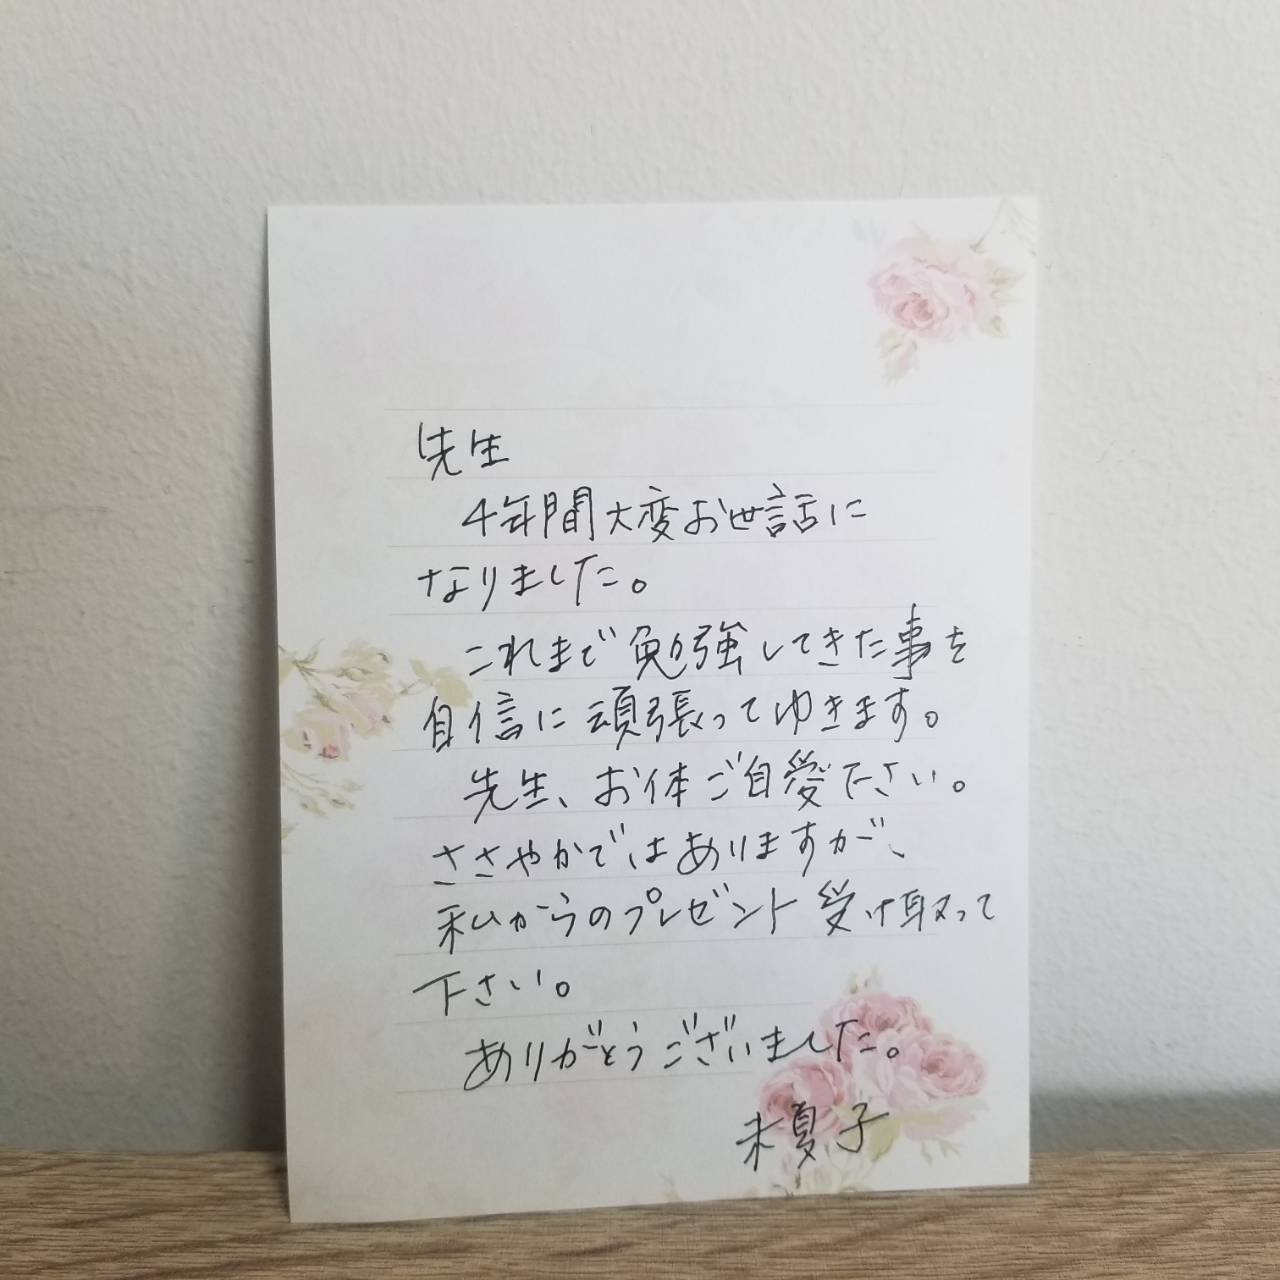 先生
4年間大変お世話に
なりました。
これまで勉強してきた事を
自信に頑張ってゆきます。
先生、お体ご自愛下さい。
ささやかではありますが、
私からのプレゼント受け取って
下さい。
ありがとうございました。
未夏子